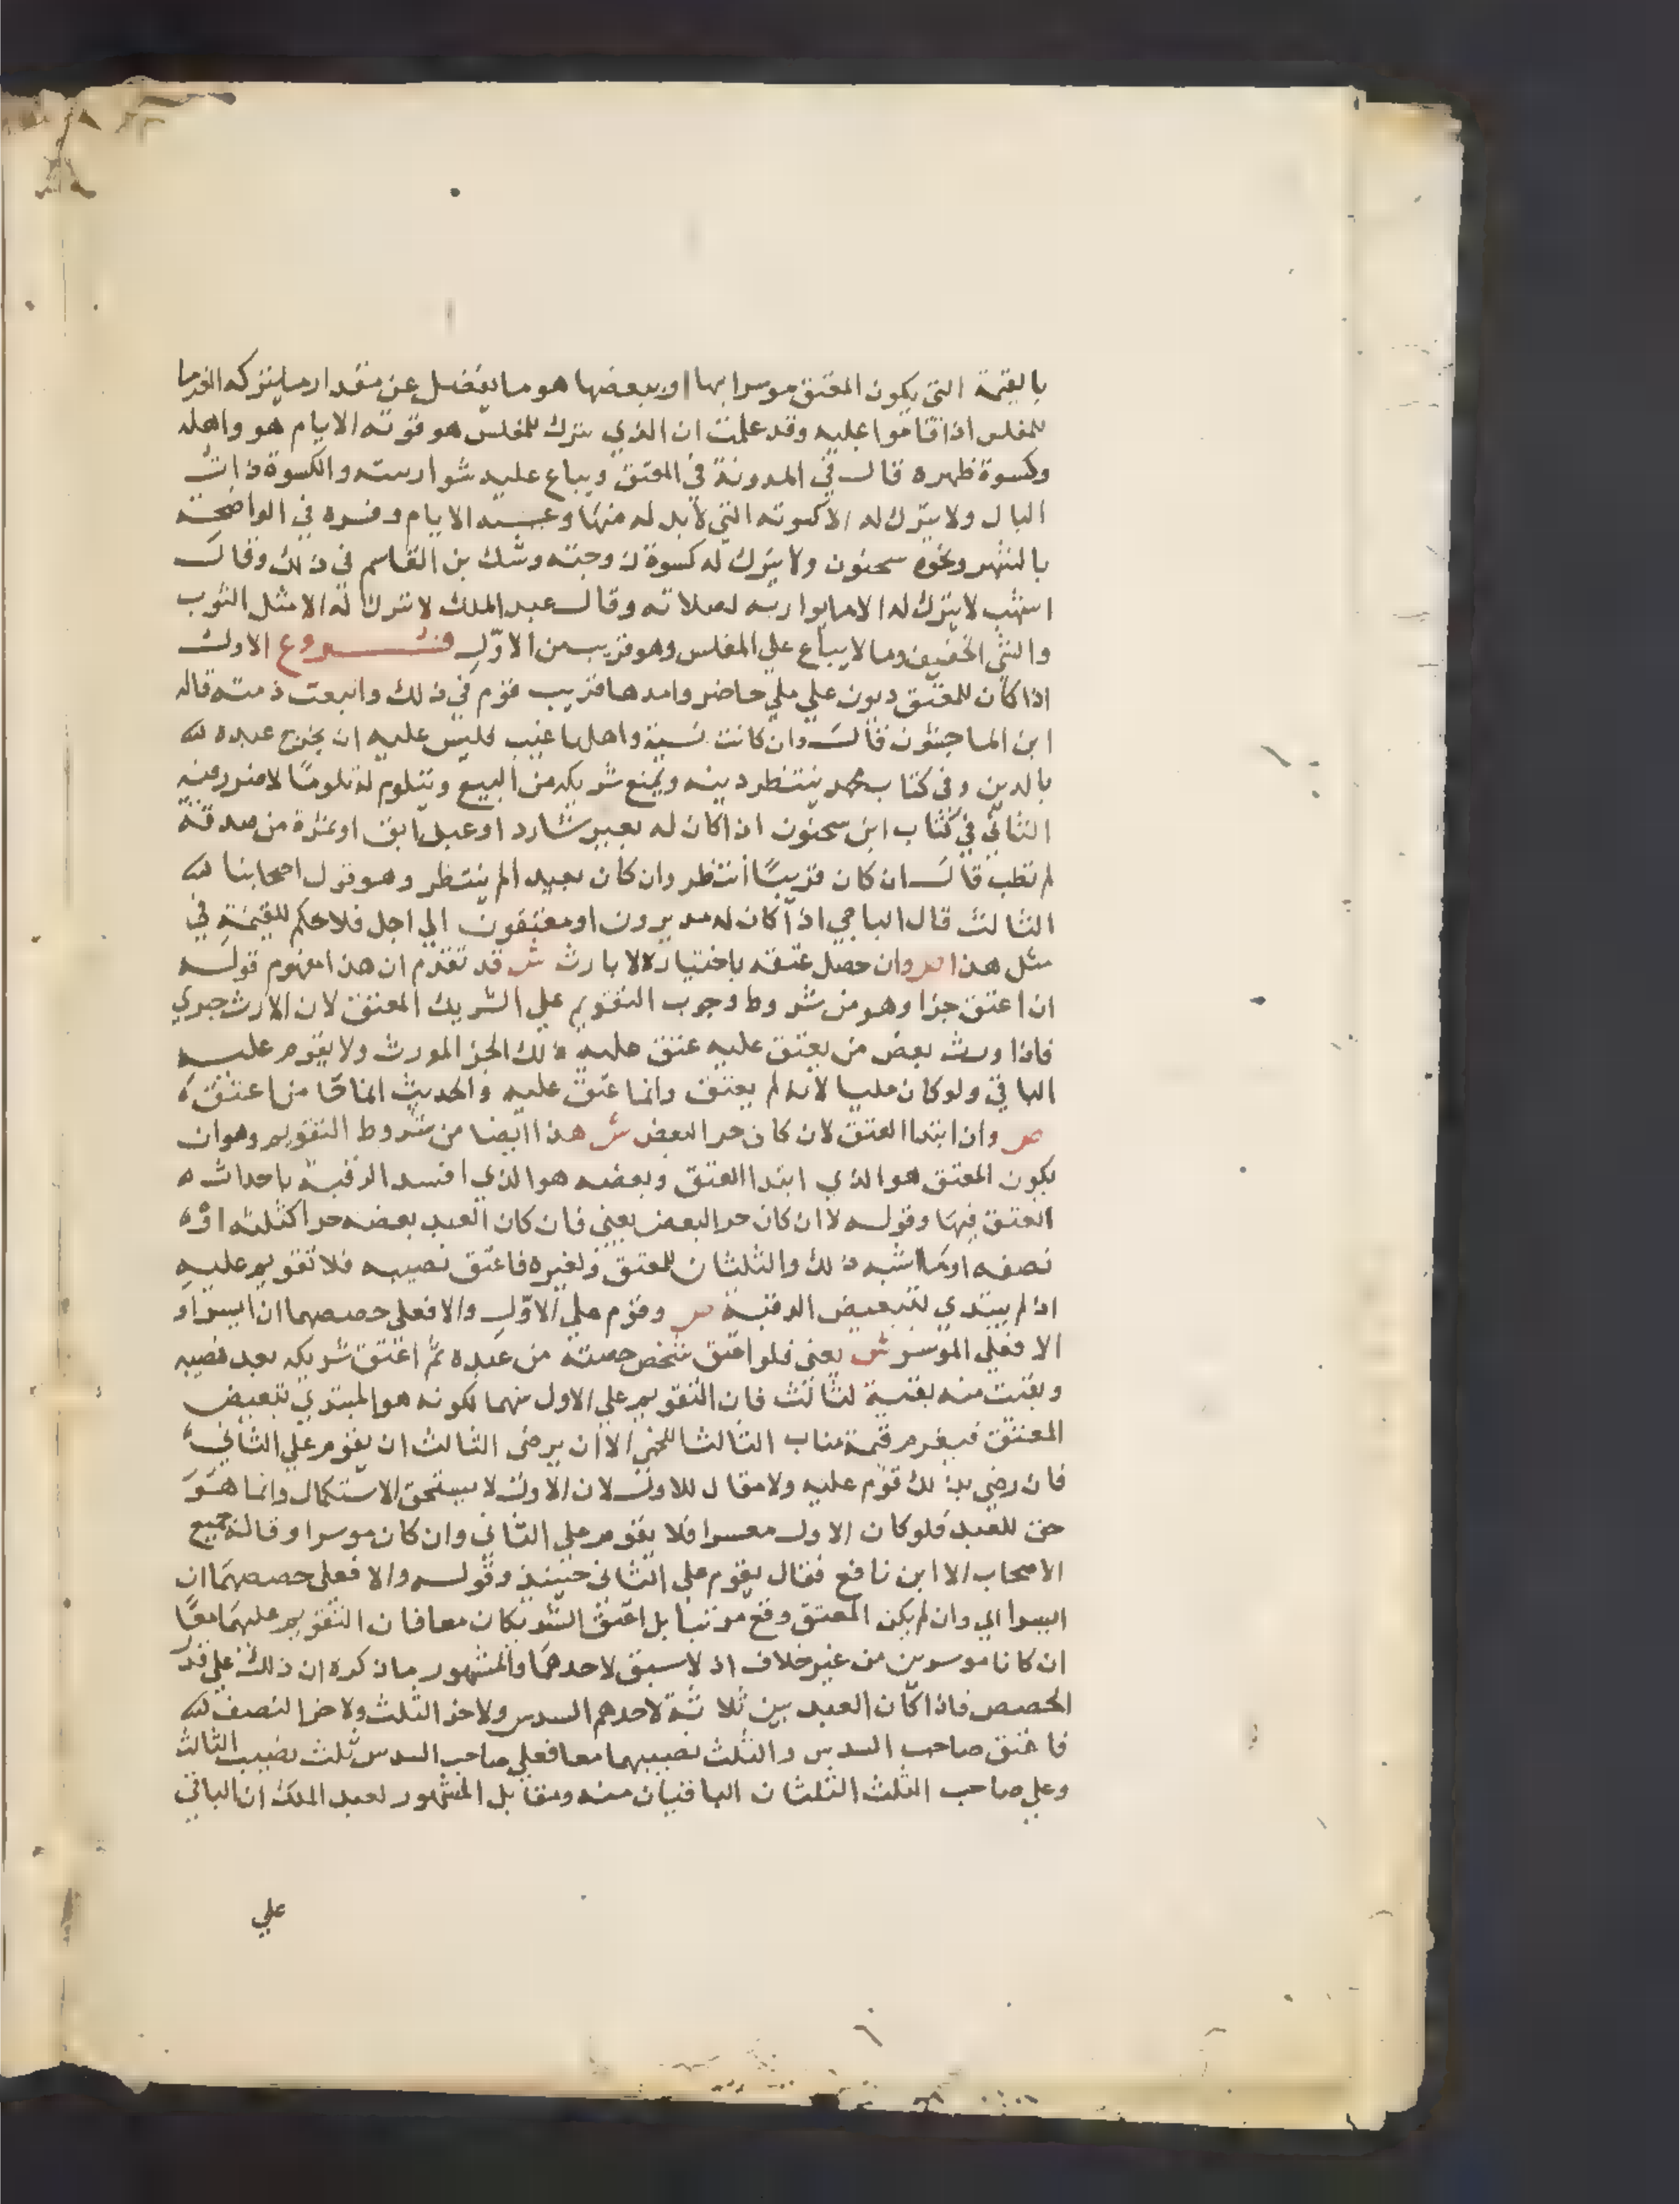 بالقيمة التي يكون المعتق موسرا بها او ببعضها هو ما يفضل عن مقدار ما يتركه الغرما
للمفلس اذا قاموا عليه وقد علمت ان الذي يترك للمفلس هو قوته الايام هو واهله
وكسوة ظهره قال في المدونة في المعتق ويباع عليه شوار بيته والكسوة ذات
البال ولا يترك له الا كسوته التي لابد له منها وعيشه الايام وفسره في الواضحة
بالشهر ونحوه سحنون ولا يترك له كسوة زوجته وشك بن القاسم في ذلك وقال
اشهب لا يترك له الا ما يواريه لصلاته وقال عبد الملك لا يترك له الا مثل الثوب
والشي الخفيف وما لا يباع علي المفلس وهو قريب من الاول فـــروع الاول
اذا كان للمعتق ديون علي ملي حاضر وامدها قريب قوم في ذلك واتبعت ذمته قاله
ابن الماجشون قال وان كانت نسية واهلها غيب فليس عليه ان يخرج عبده
بالدين وفي كتاب محمد ينتظر دينه ويمنع شريكه من البيع ويتلوم له تلوما لا ضرر فيه
الثاني في كتاب ابن سحنون اذا كان له بعير شارد او عبد ابق او ثمرة من صدقة
لم تطب قال ان كان قريبا انتظر وان كان بعيدا لم ينتظر وهو قول اصحابنا
الثالث قال الباجي اذا كان له مدبرون او معتقون الي اجل فلا حكم للقيمة في
مثل هذا ص وان حصل عتقه باختياره لا بارث ش قد تقدم ان هذا مفهوم قوله
ان اعتق جزا وهو من شروط وجوب التقويم علي الشريك المعتق لان الارث جبري
فاذا ورث بعض من يعتق عليه عتق عليه ذلك الجز المورث ولا يقوم عليه
الباقي ولو كان مليا لانه لم يعتق وانما عتق عليه والحديث انما جا من اعتق
ص وان ابتدا العتق لان كان حر البعض ش هذا ايضا من شروط التقويم وهو ان
يكون المعتق هو الذي ابتدا العتق وبعضه هو الذي افسد الرقبة باحداثه
العتق فيها وقوله لا ان كان حر البعض يعني فان كان العبد بعضه حرا كثلثه او
نصفه او ما اشبه ذلك والثلثان للمعتق ولغيره فاعتق نصيبه فلا تقويم عليه
اذ لم يبتدي لتبعيض الرقبة ص وقوم علي الاول والا فعلي حصصهما ان ايسرا و
الا فعلي الموسر ش يعني فلو اعتق شخص حصته من عبده ثم اعتق شريكه بعد نصيبه
وبقيت منه بقية لثالث فان التقويم علي الاول منهما لكونه هو المبتدي بتبعيض
المعتق فيغرم قيمة مناب الثالث الا ان يرضي الثالث ان يقوم علي الثاني
فان رضي بذلك قوم عليه ولا مقال للاول لان الاول لا يستحق الاستكمال وانما هو
حق للعبد فلو كان الاول معسرا فلا يقوم علي الثاني وان كان موسرا وقاله جميع
الاصحاب الا ابن نافع فقال يقوم علي الثاني حينئذ وقوله والا فعلي حصصهما ان
ايسرا الي وان لم يكن المعتق وقع مرتبا بل اعتق الشريكان معا فان التقويم عليهما معا
ان كانا موسرين من غير خلاف اذ لا سبق لاحدهما والمشهور ما ذكره ان ذلك علي قدر
الحصص فاذا كان العبد بين ثلاثة لاحدهم السدس ولاخر الثلث ولاخر النصف
فاعتق صاحب السدس والثلث نصيبهما معا فعلي صاحب السدس ثلث نصيب الثالث
وعلي صاحب الثلث الثلثان الباقيان منه ومقابل المشهور لعبد الملك ان الباقي
علي